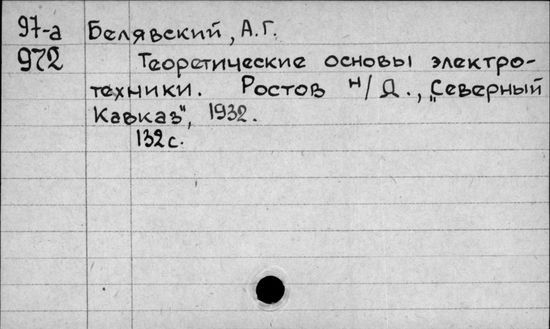 97-а Белявский, А.Г.
972 Теоретические основы электро-
техники. Ростов н/Д., „Северный
Кавказ", 1932.
132 с.